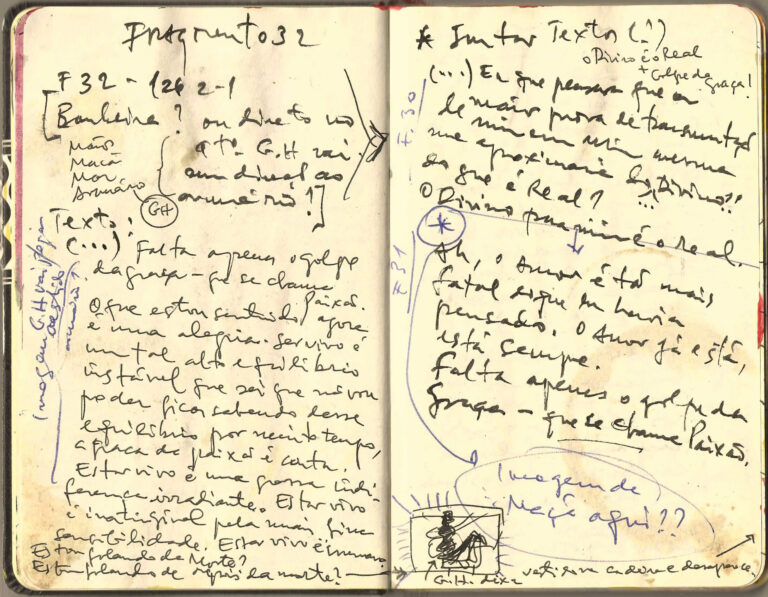 Fragmento 32
F 32 - 1262-1
[Banheira? ou direto no
qto G.H vai
em direção ao
armário!]
Mãos-
Maçã
Mar
Armário
GH
Imagem G.H vai pegar
vestido
armário?
Texto:
(...) Falta apenas o golpe
da graça - que se chama
Paixão.
O que estou sentindo agora
é uma alegria. Ser vivo é
um tal alto equilíbrio
instável que sei que não vou
poder ficar sabendo desse
equilíbrio por muito tempo,
a graça da paixão é curta.
Estar vivo é uma grossa indi-
ferença irradiante. Estar vivo
é inatingível pela mais fina
sensibilidade. Estar vivo é inumano
Estou falando da Morte?
Estou falando de depois da morte?
* Juntar Textos (!)
O Divino é o Real
+ Golpe da
graça!
F.30
(...) Eu que pensara que a
maior prova de transmutação
de mim em mim mesma
me aproximaria do Divino??
do que é Real?
O Divino para mim é o Real.
*
F.31
Ah, o Amor é tão mais
fatal do que eu havia
pensado. O Amor já está,
está sempre.
Falta apenas o golpe da
Graça - que se chama Paixão.
Imagem de
Maçã aqui??
G.H. deixa
vestido na cadeira e desaparece